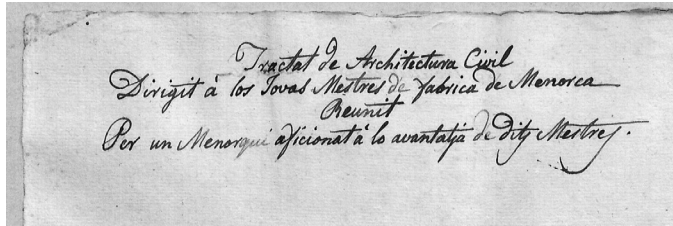 Tractat de Architectura Civil
Dirigit à los Jovas Mestres de fabrica de Menorca
Reunit
Per un Menorquí aficionat à lo avantatjà de dits Mestres.